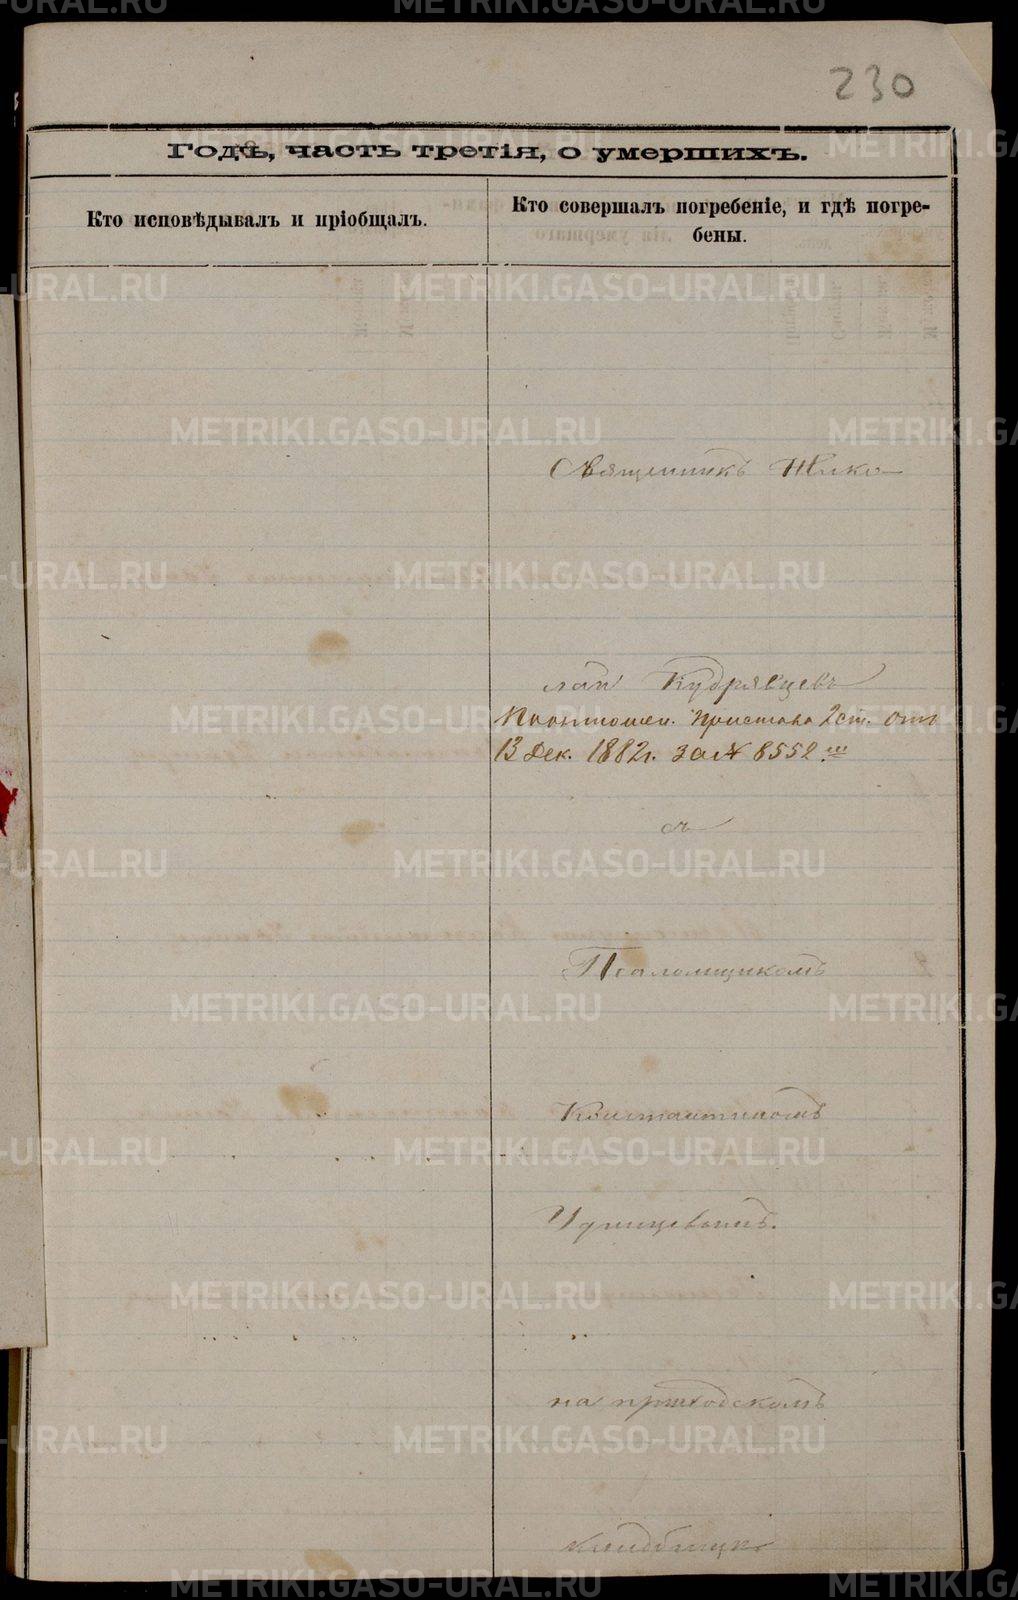 230
Годъ, часть третія, о умершихъ.
Кто исповѣдывалъ и пріобщалъ.
Кто совершалъ погребеніе, и гдѣ погре-
бены.
Священникъ Нико-
лай Кудрявцевъ
Пристава 2 ст. отъ
13 Дек. 1882 г. за № 8552
съ
Псаломщикомъ
Константиномъ
на приходскомъ
кладбищѣ
METRIKI.GASO-URAL.RU